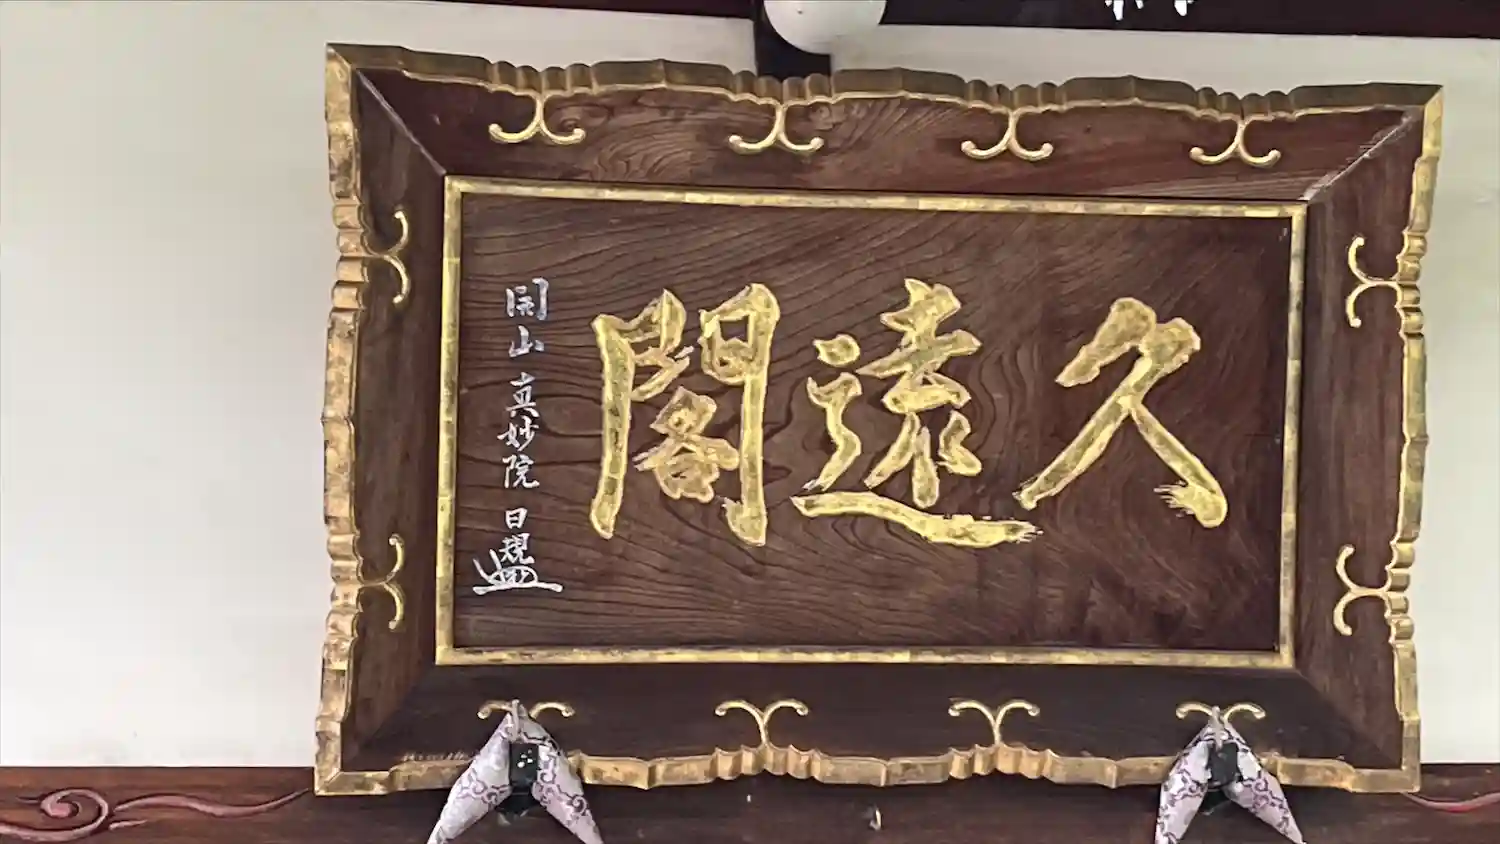 久遠閣
開山 真妙院 日規